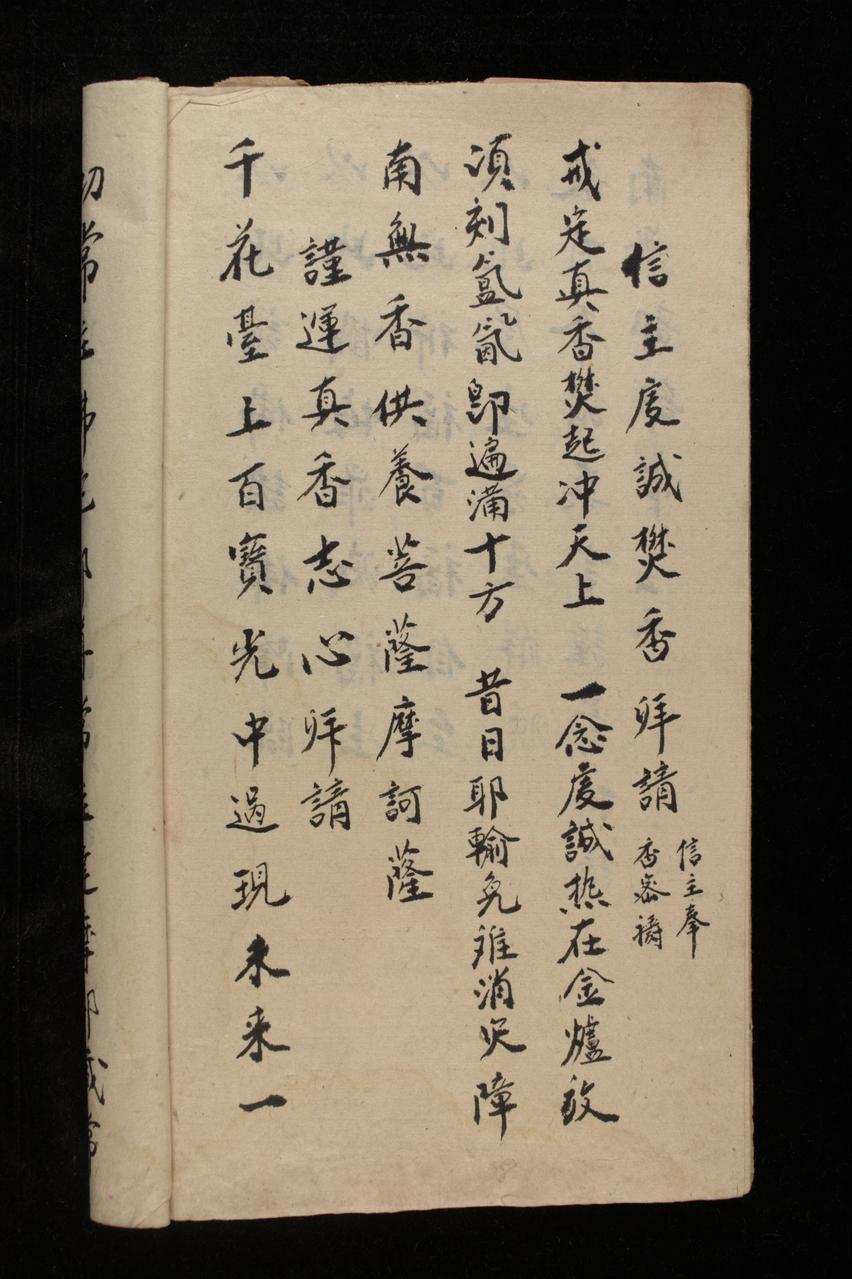 信主虔誠焚香拜請
信主奉
香畚禱
戒定真香焚起冲天上 一念虔誠𤍠在金爐放
湏刻氤氳即遍滿十方 昔日耶輸免难消灾障
南無香供養菩蕯摩訶蕯
謹運真香志心拜請
千花臺上百寶光中過現未来一
切常住佛